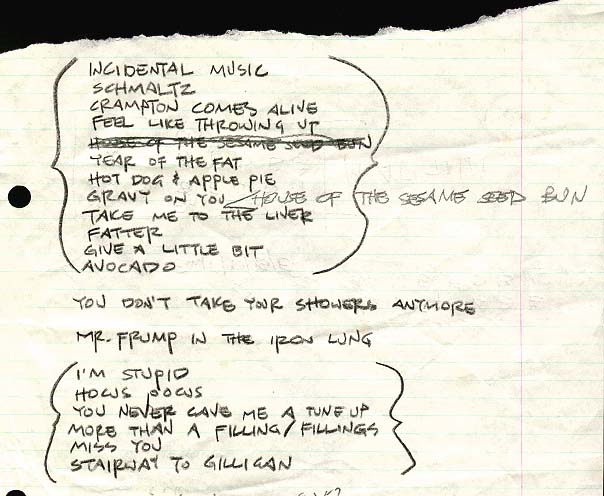 INCIDENTAL MUSIC
SCHMALTZ
CRAMPTON COMES ALIVE
FEEL LIKE THROWING UP
HOUSE OF THE SESAME SEED BUN
YEAR OF THE FAT
HOT DOG & APPLE PIE
GRAVY ON YOU HOUSE OF THE SESAME SEED BUN
TAKE ME TO THE LIVER
FATTER
GIVE A LITTLE BIT
AVOCADO
YOU DON'T TAKE YOUR SHOWERS ANYMORE
MR. FRUMP IN THE IRON LUNG
I'M STUPID
HOCUS POCUS
YOU NEVER GAVE ME A TUNE UP
MORE THAN A FILLING/FILLINGS
MISS YOU
STAIRWAY TO GILLIGAN